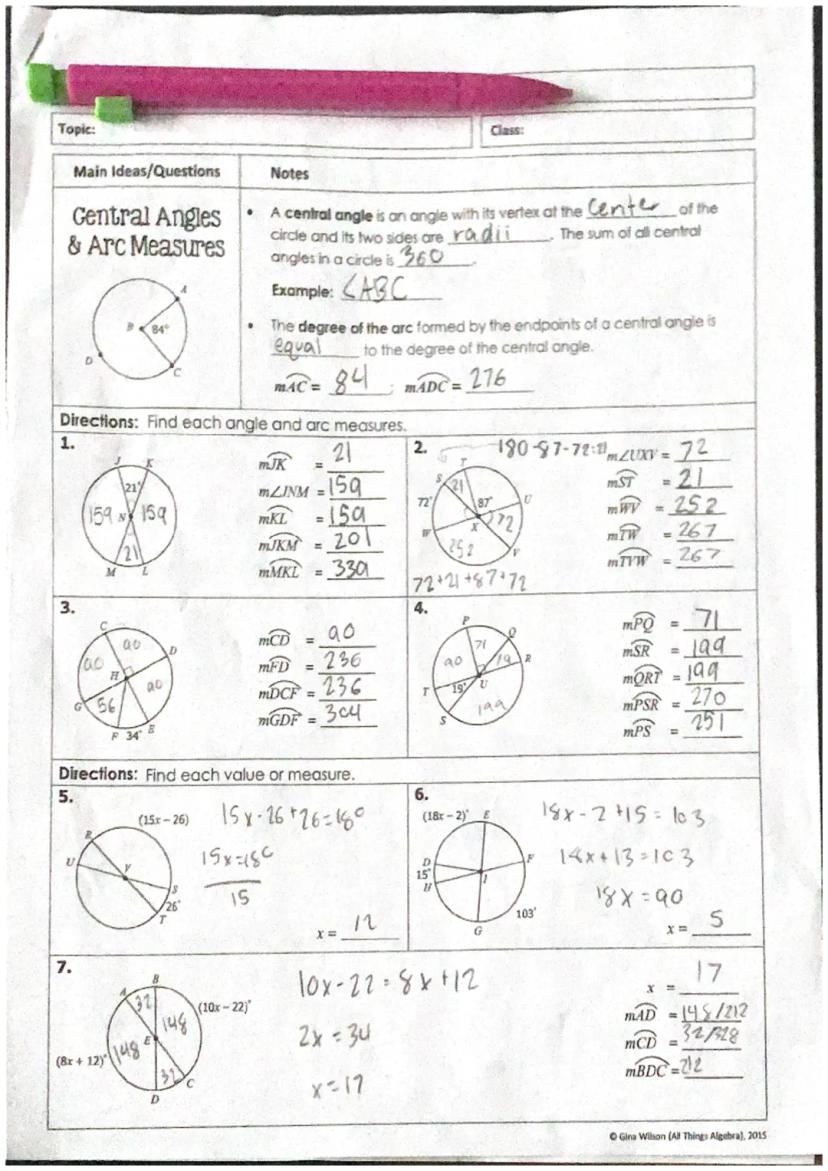 Topic:
Class:
Main Ideas/Questions
Notes
Central Angles
& Arc Measures
A
B 84°
D
C
• A central angle is an angle with its vertex at the center of the
circle and its two sides are radii. The sum of all central
angles in a circle is 360.
Example: <ABC
• The degree of the arc formed by the endpoints of a central angle is
equal to the degree of the central angle.
mAC = 84 ; mADC = 276
Directions: Find each angle and arc measures.
1.
J K
21°
159 N 159
21
M L
mJK = 21
m∠JNM = 159
mKL = 159
mJKM = 201
mMKL = 339
2.
180-87-72=21
T
S 21
72° 87° U
X 72
W 252
V
72+21+87+72
m∠UXV = 72
mST = 21
mWV = 252
mTW = 267
mTVW = 267
3.
C
90 D
90 H
90
G 56
F 34° E
mCD = 90
mFD = 236
mDCF = 236
mGDF = 304
4.
P
Q
71
90 19 R
T 19° U
199
S
mPQ = 71
mSR = 199
mQRT = 199
mPSR = 270
mPS = 251
Directions: Find each value or measure.
5.
(15x – 26)
R
U
V
S
26°
T
15x-26+26=180
15x=180
15
x = 12
6.
(18x – 2)° E
D
15° F
H J
103°
G
18x-2+15=103
18x+13=103
18x=90
x = 5
7.
B
A 32
(10x – 22)°
148
E
148
(8x + 12)°
32 C
D
10x-22=8x+12
2x=34
x=17
x = 17
mAD = 148/212
mCD = 32/328
mBDC = 212
© Gina Wilson (All Things Algebra), 2015